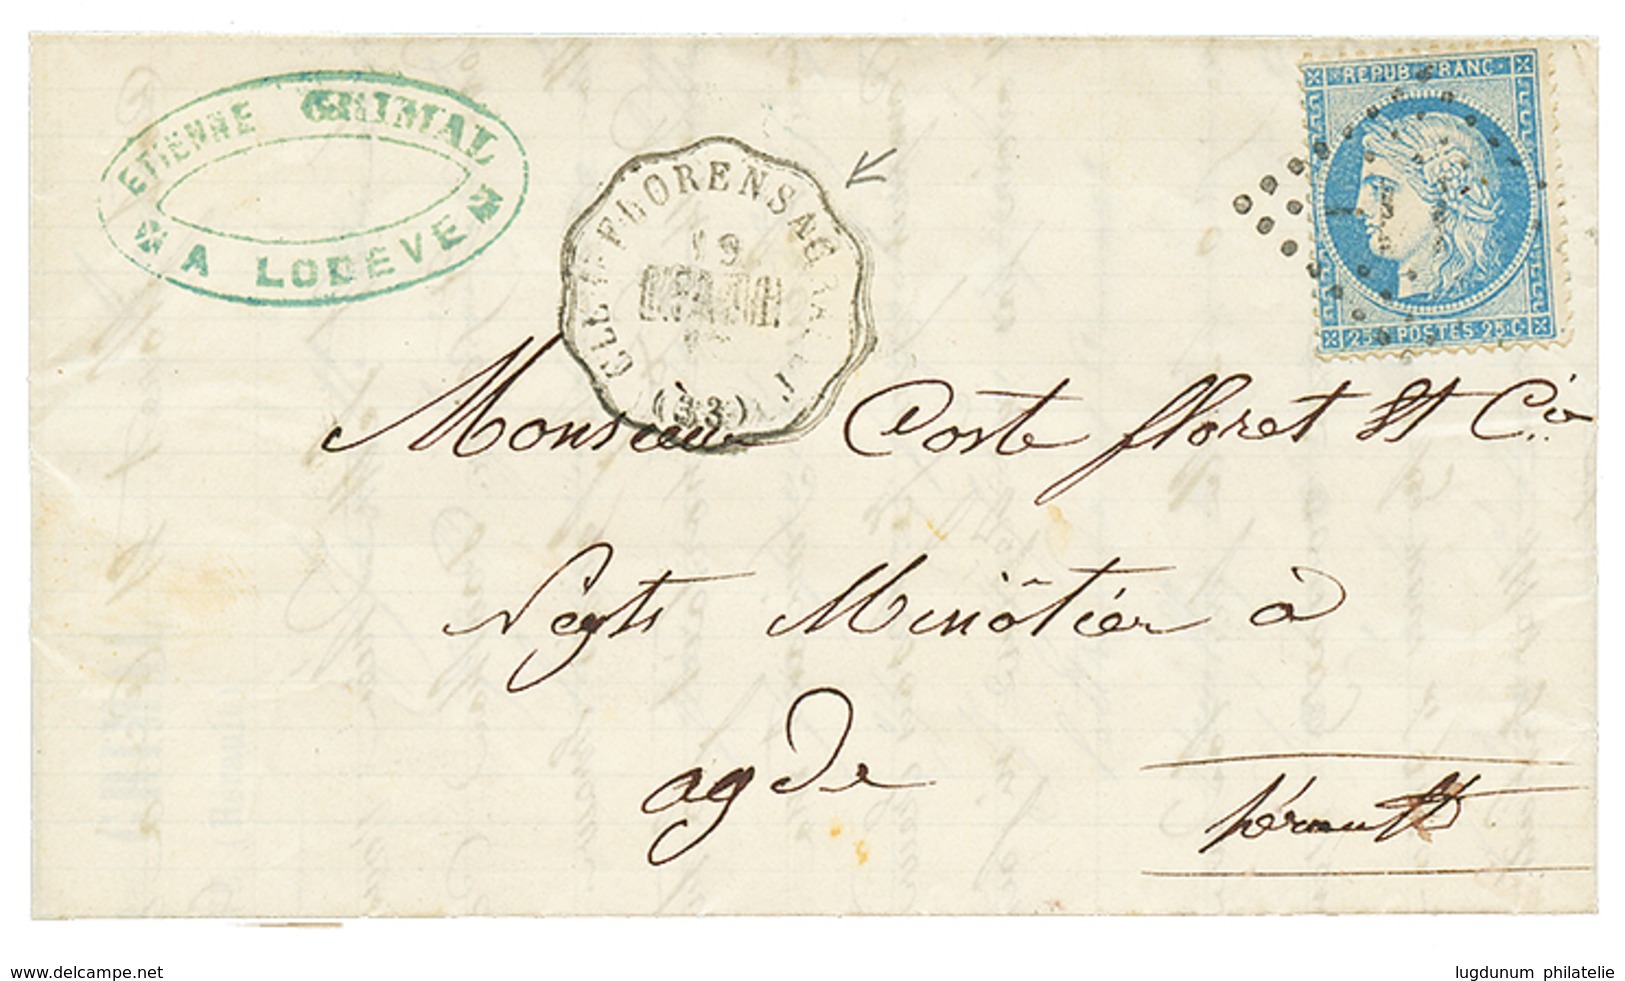 ETIENNE GRIMAL
A LODEVE
FLORENSAC
19
(33)
REPUB FRANC
25 POSTES 25 C
Monsieur Coste floret et Cie
Negts Minôtier à
agde
hérault
www.delcampe.net
lugdunum philatelie